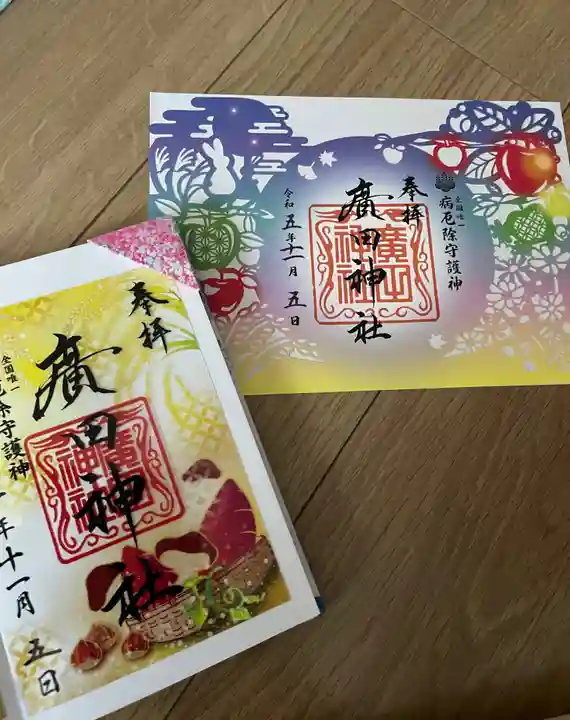 奉拝
全国唯一
病厄除守護神
廣田神社
廣田神社
令和五年十一月五日
奉拝
廣田神社
廣田神社
全国唯一
厄除守護神
年十一月五日